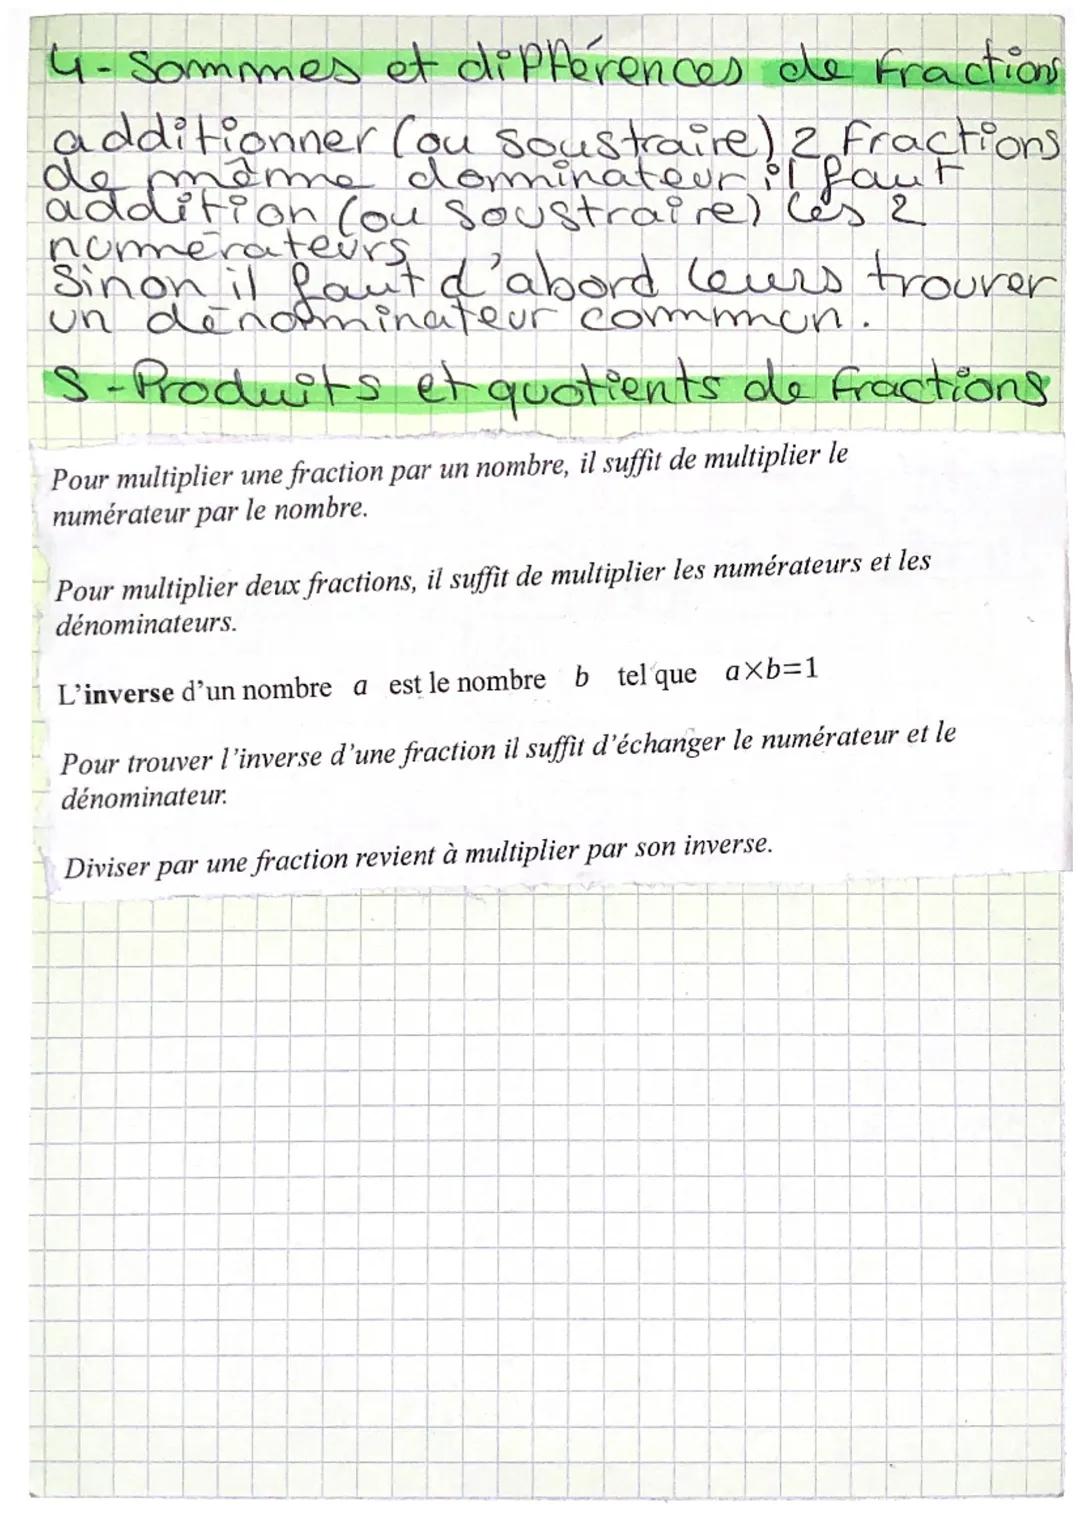 4-Sommes et différences de fractions
additionner (ou soustraire) 2 fractions
de même dominateur il faut
addition (ou soustraire) les 2
numérateurs
Sinon il faut d'abord leurs trouver
un dénominateur commun.
5-Produits et quotients de fractions
Pour multiplier une fraction par un nombre, il suffit de multiplier le
numérateur par le nombre.
Pour multiplier deux fractions, il suffit de multiplier les numérateurs et les
dénominateurs.
L'inverse d'un nombre a est le nombre b tel que a×b=1
Pour trouver l'inverse d'une fraction il suffit d'échanger le numérateur et le
dénominateur.
Diviser par une fraction revient à multiplier par son inverse.